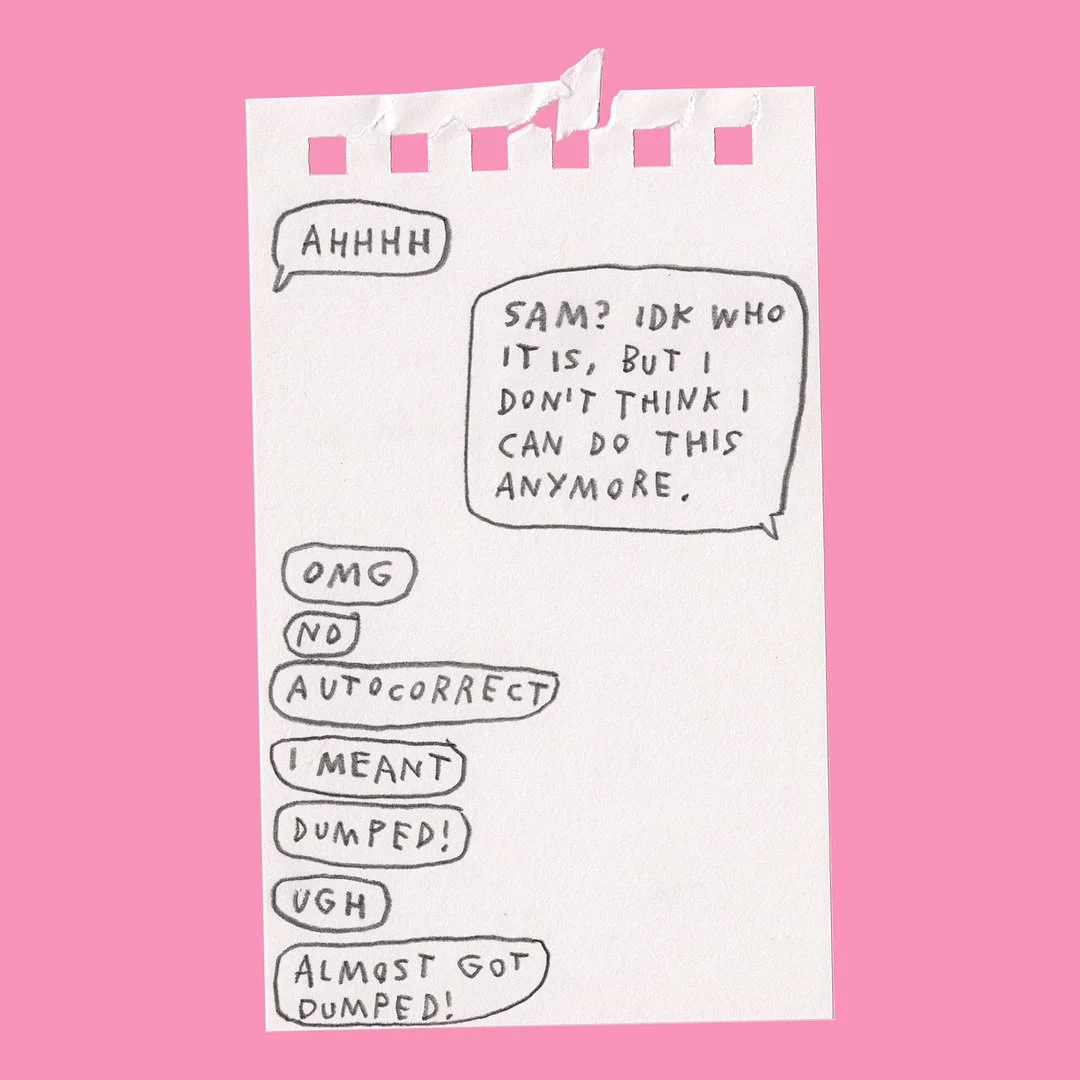 AHHHH
SAM? IDK WHO
IT IS, BUT I
DON'T THINK I
CAN DO THIS
ANYMORE.
OMG
NO
AUTOCORRECT
I MEANT
DUMPED!
UGH
ALMOST GOT
DUMPED!